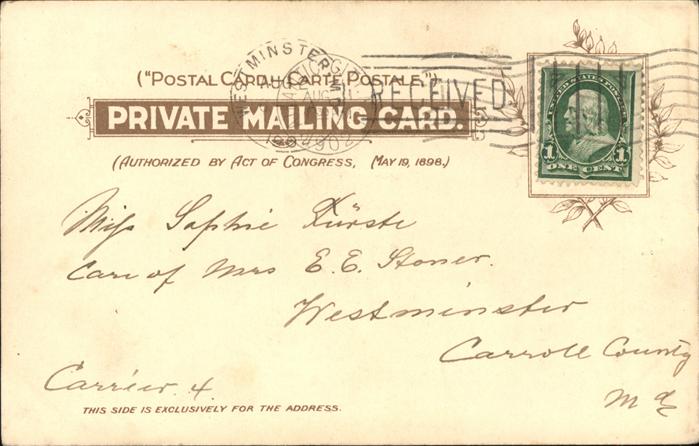 ("Postal Card — Carte Postale.")
PRIVATE MAILING CARD.
(AUTHORIZED BY ACT OF CONGRESS, MAY 19, 1898.)
WESTMINSTER
AUG
RECEIVED
1902
UNITED STATES POSTAGE
1 1
ONE CENT
Miss Sophie Dürste
Care of Mrs E. E. Stoner.
Westminster
Carroll County
Md
Carrier 4.
THIS SIDE IS EXCLUSIVELY FOR THE ADDRESS.